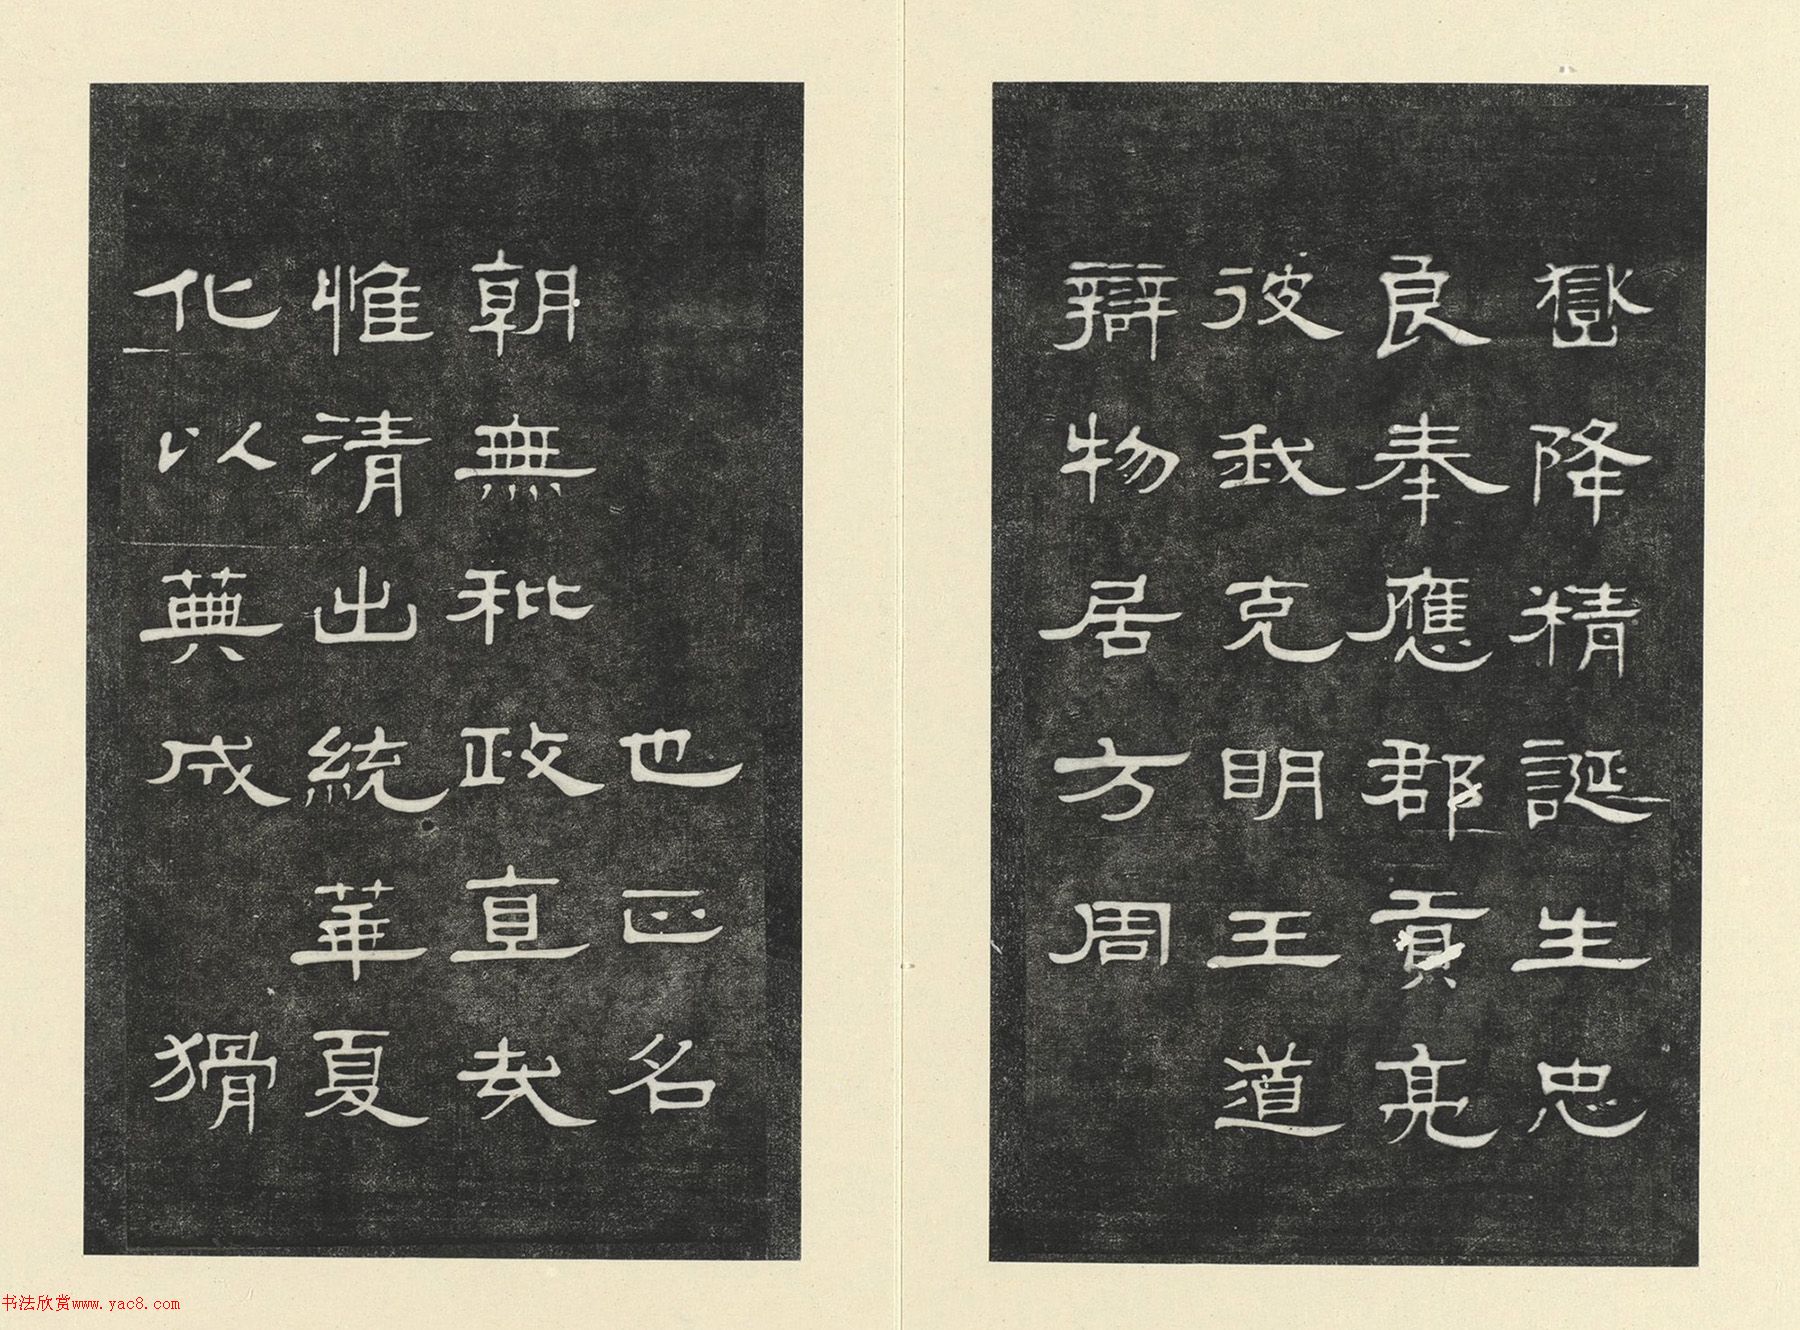 嶽降精誕生忠
良奉應郡貢亮
彼我克明王道
辯物居方周
也正名
朝無秕政直哉
惟清出統華夏
化以藂成猾
书法欣赏www.yac8.com